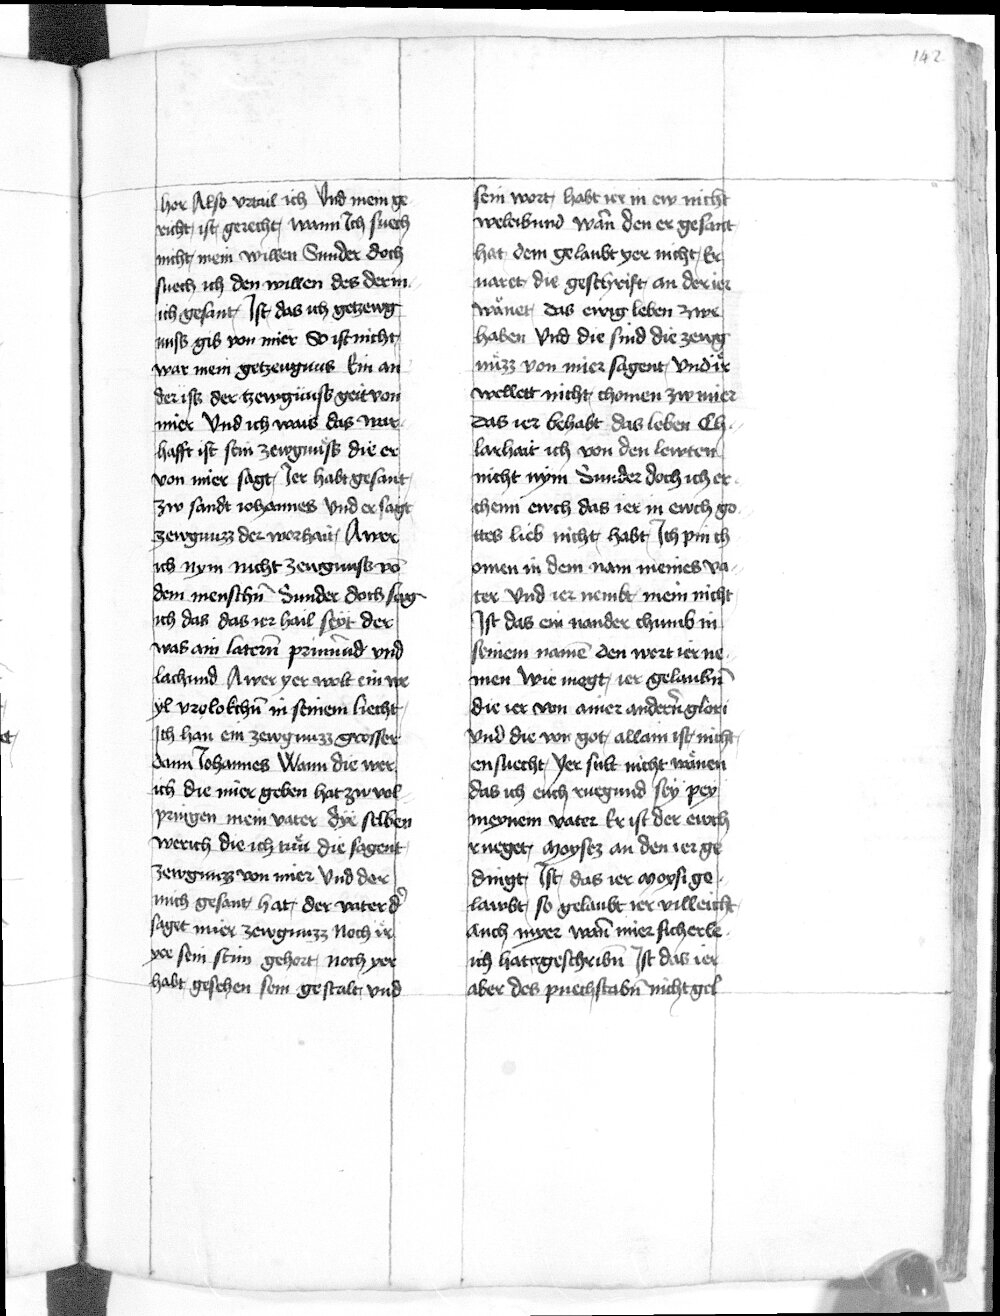 142
hor Also vrtail ich Vnd mein ge
richt ist gerecht wann Ich suech
nicht mein willen Sunder doch
suech ich den willen des der m
ich gesant Ist das ich getzewg
nuss gib von mier So ist nicht
war mein getzeugnus Ein an
der ist der tzewgnüss geit von
mier Vnd ich wais das war
hafft ist sein zewgnuss die er
von mier sagt Ier habt gesant
zw sandt iohannes Vnd er sagt
zewgnuzz der worhait Awer
ich nym nicht zewgnuss vō
dem menschn̄ Sunder doch sag
ich das das ier hail seyt der
was ain latern̄ prinn̄ud vnd
lachund Awer yer wolt ein we
yl vrolokchn̄ in seinem liecht
Ich han ein zewgnuzz grosser
dann Iohannes Wann die wer
ich die mier geben hat zw vol
pringen mein vater dye selben
werich die ich tuu die sagent
zewgnuzz von mier Vnd der
mich gesant hat der vater d
saget mier zewgnuzz Noch ir
yee sein stim gehort noch yer
habt gesehen sein gestalt vnd
sein wort habt ier in ew nicht
weleibund wan̄ den er gesant
hat dem gelaubt yer nicht Er
uaret die geschrift an der ier
wänet das ewig leben zwe
haben Vnd die sind die zewg
nüzz von mier sagent Vnd ir
wellett nicht chomen zw mier
das ier behabt das leben Ch
larhait ich von den lewten
nicht nym Sunder doch ich er
chenn ewch das ier in ewch go
ttes lieb nicht habt Ich pin ch
omen in dem nam meines va
ter Vnd ier nembt mein nicht
Ist das ein nander chumb in
seinem namē den wert ier ne
men Wie mogt ier gelaubn̄
die ier von ainer andern̄ glori
Vnd die von got allain ist nicht
ensuecht Yer sült nicht wänen
das ich euch ruegund sey pey
meynem vater Er ist der ewch
rueget Moysez an den ier ge
dingt Ist das ier Moysi ge
lawbt so gelaubt ier villeicht
auch myer wan̄ mier sicherle
ich hat geschribn̄ Ist das ier
aber des puechstabn̄ nicht gel